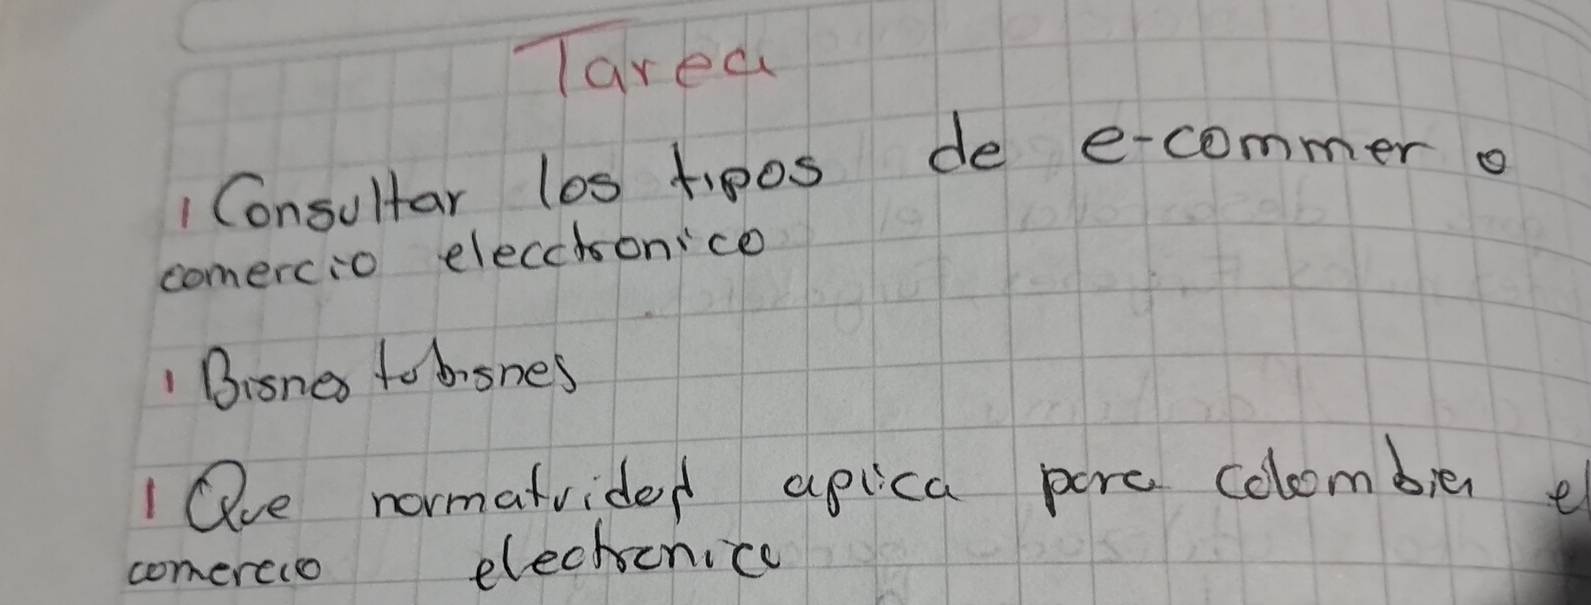 Tarea
1 Consultar los tipos de e-commer o
comercio elecctronico
1 Bisnes to bisnes
1 Que normatvided aplica para colombia el
comercio electronico